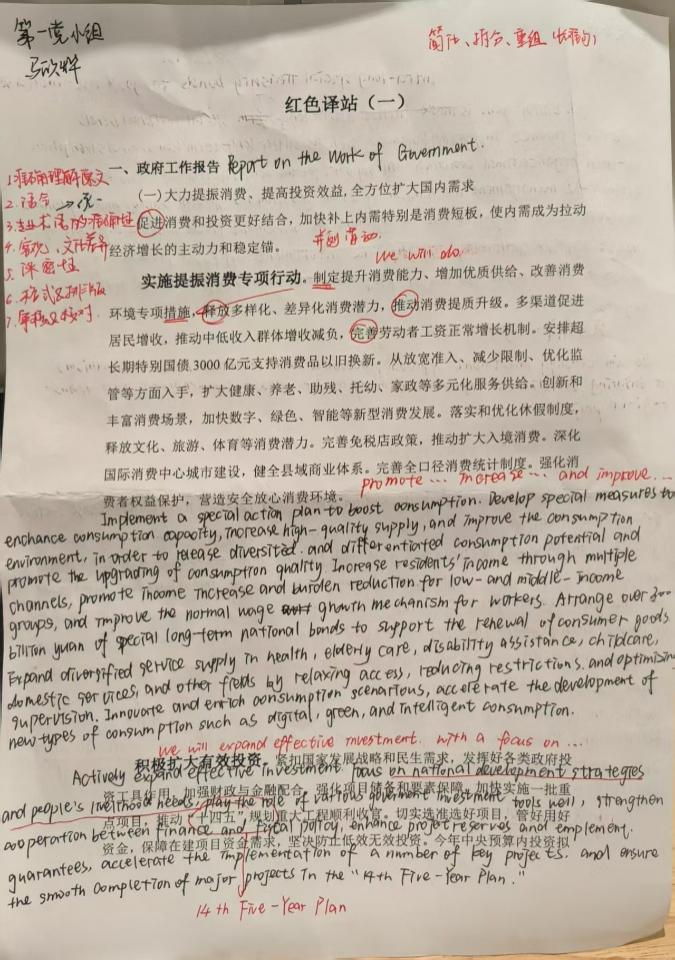 第一党小组
马欣烨
简化、拆分、重组
红色译站（一）
一、政府工作报告 Report on the Work of Government.
（一）大力提振消费、提高投资效益,全方位扩大国内需求
促进消费和投资更好结合，加快补上内需特别是消费短板，使内需成为拉动
经济增长的主动力和稳定锚。
we will do
1.准确理解原文
2.语合
3.专业术语的准确性
4.客观、文化差异
5.保密性
6.格式及排版
7.审核及校对
实施提振消费专项行动。制定提升消费能力、增加优质供给、改善消费
环境专项措施，释放多样化、差异化消费潜力，推动消费提质升级。多渠道促进
居民增收，推动中低收入群体增收减负，完善劳动者工资正常增长机制。安排超
长期特别国债 3000 亿元支持消费品以旧换新。从放宽准入、减少限制、优化监
管等方面入手，扩大健康、养老、助残、托幼、家政等多元化服务供给。创新和
丰富消费场景，加快数字、绿色、智能等新型消费发展。落实和优化休假制度，
释放文化、旅游、体育等消费潜力。完善免税店政策，推动扩大入境消费。深化
国际消费中心城市建设，健全县域商业体系。完善全口径消费统计制度。强化消
费者权益保护，营造安全放心消费环境。
promote ... increase ... and improve ...
Implement a special action plan to boost consumption. Develop special measures to
enchance consumption capacity, increase high-quality supply, and improve the consumption
environment, in order to release diversitied and differentiated consumption potential and
promote the upgrading of consumption quality Increase residents' income through multiple
channels, promote income increase and burden reduction for low- and middle-income
groups, and improve the normal wage growth mechanism for workers. Arrange over 300
billion yuan of special long-term national bonds to support the renewal of consumer goods.
Expand diversified service supply in health, elderly care, disability assistance, childcare,
domestic services, and other fields by relaxing access, reducing restrictions. and optimising
supervision. Innovate and enrich consumption scenarious, accelerate the development of
new types of consumption such as digital, green, and intelligent consumption.
we will expand effective investment. with a focus on ...
积极扩大有效投资。紧扣国家发展战略和民生需求，发挥好各类政府投
资工具作用，加强财政与金融配合，强化项目储备和要素保障，加快实施一批重
点项目，推动“十四五”规划重大工程顺利收官。切实选准选好项目，管好用好
资金，保障在建项目资金需求，坚决防止低效无效投资。今年中央预算内投资拟
Actively expand effective investment focus on national development strategies
and people's livelihood needs, play the role of various goverment investment tools well, strengthen
cooperation between finance and fiscal policy, enhance project reserves and emplement.
guarantees, accelerate the implementation of a number of key projects. and ensure
the smooth completion of major projects in the "14th Five-Year Plan."
14th Five-Year Plan